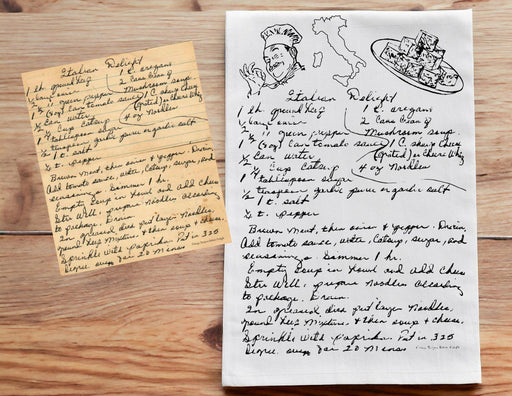 Italian Delight
1 lb. ground beef
1 C. oregano
1/2 " green pepper
2 Cans Cream of
Mushroom soup
1 (8oz) Can tomato sauce
1 C. sharp Cheese
(grated) or Cheese Whiz
1/2 Can water
1/2 Cup Catsup
4 oz Noodles
1 tablespoon sugar
1/2 teaspoon garlic puree or garlic salt
1 t. salt
1/2 t. pepper
Brown meat, then onion & pepper. Drain.
Add tomato sauce, water, Catsup, sugar, and
seasoning. Simmer 1 hr.
Empty Soup in bowl and add Cheese
Stir Well, prepare Noodles according
to package. Drain.
In greased dish put layer Noodles,
ground beef Mixture, & then soup & cheese.
Sprinkle with paprika. Put in 325
degree oven for 20 Minutes
Italian Delight
1 lb. ground beef
1 C. oregano
2 Cans Cream of
1/2 " green pepper
Mushroom soup
1 (8oz) Can tomato sauce
1 C. sharp Cheese
(grated) or Cheese Whiz
1/2 Can water
1/2 Cup Catsup
4 oz Noodles
1 tablespoon sugar
1/2 teaspoon garlic puree or garlic salt
1 t. salt
1/2 t. pepper
Brown meat, then onion & pepper. Drain.
Add tomato sauce, water, Catsup, sugar, and
seasoning. Simmer 1 hr.
Empty Soup in bowl and add Cheese
Stir Well, prepare Noodles according
to package. Drain.
In greased dish put layer Noodles,
ground beef Mixture, & then soup & cheese.
Sprinkle with paprika. Put in 325
degree oven for 20 Minutes